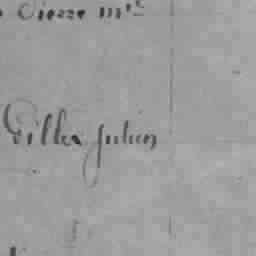 Pierre mᵉˢ
Gilles Julien